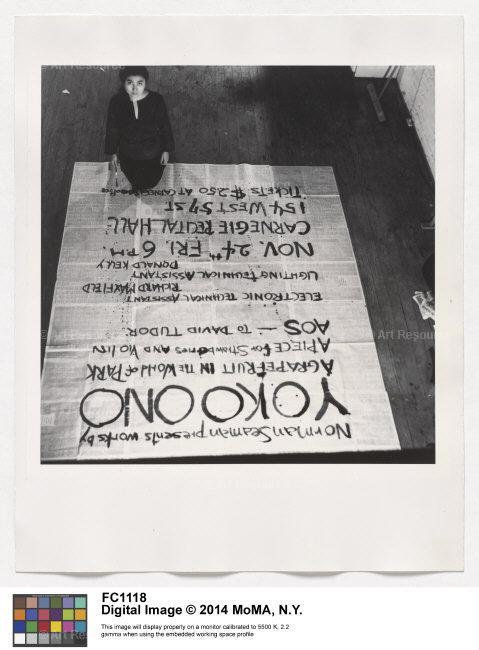 Norman Seaman presents works by
YOKO ONO
A GRAPEFRUIT IN THE WORLD OF PARK
A PIECE FOR Strawberries AND VIOLIN
AOS — TO DAVID TUDOR
ELECTRONIC TECHNICAL ASSISTANT
RICHARD MAXFIELD
LIGHTING TECHNICAL ASSISTANT
DONALD KELLY
NOV. 24TH FRI. 6 P.M.
CARNEGIE RECITAL HALL
154 WEST 57 ST
TICKETS $2.50 AT CARNEGIE
© Art Resource
FC1118
Digital Image © 2014 MoMA, N.Y.
This image will display properly on a monitor calibrated to 5500 K, 2.2
gamma when using the embedded working space profile